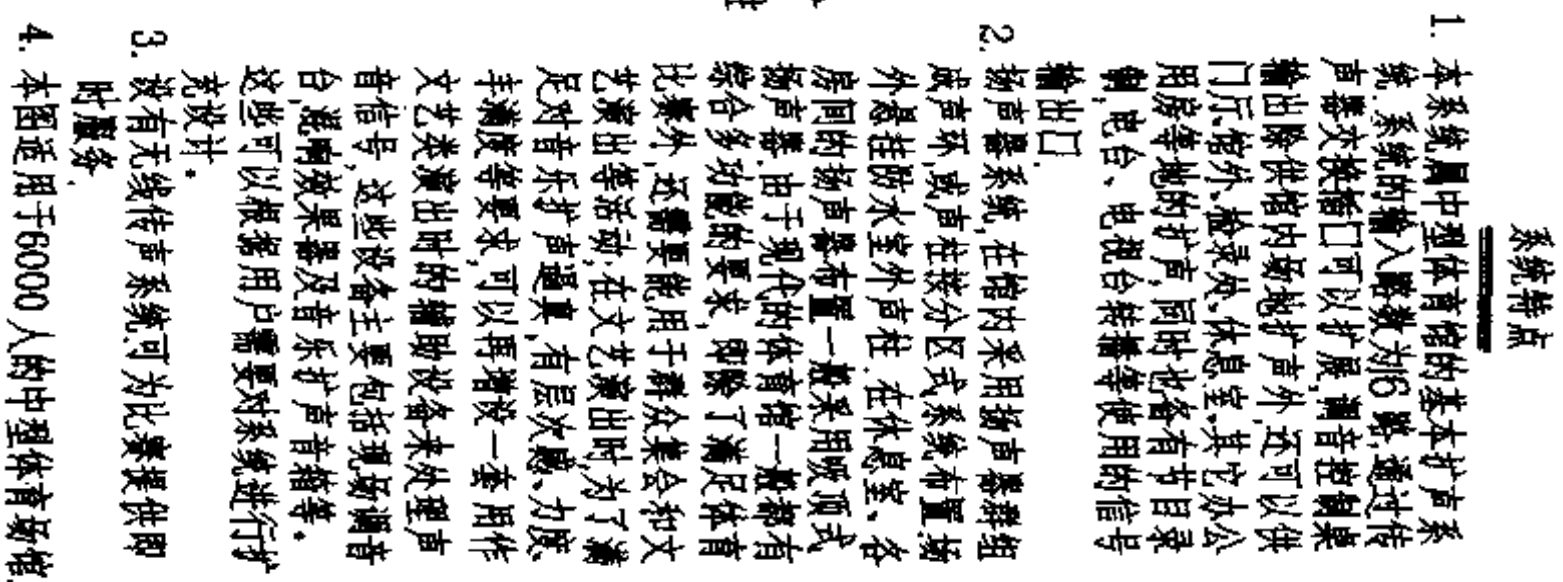 系统特点
1. 本系统属中型体育馆的基本扩声系
统.系统的输入路数为16路,通过传
声器转换插口可以扩展,调音控制桌
输出除供馆内场地扩声外,还可以供
门厅、馆外、检录处、休息室、其它办公
用房等地的扩声,同时也备有节目录
制,电台、电视台转播等使用的信号
输出口.
2. 扬声器系统,在馆内采用扬声器群组
成声环,或声柱按分区式系统布置,场
外悬挂防水室外声柱.在休息室、各
房间的扬声器布置一般采用吸顶式
扬声器.由于现代的体育馆一般都有
综合多功能的要求,即除了满足体育
比赛外,还需要能用于群众集会和文
艺演出等活动,在文艺演出时,为了满
足对音乐扩声逼真,有层次感、力度、
丰满度等要求,可以再增设一套用作
文艺类演出时的辅助设备来处理声
音信号,这些设备主要包括现场调音
台,混响效果器及音乐扩声音箱等。
这些可以根据用户需要对系统进行扩
充设计。
3. 设有无线传声系统,可为比赛提供即
时服务.
4. 本图适用于6000人的中型体育场馆.